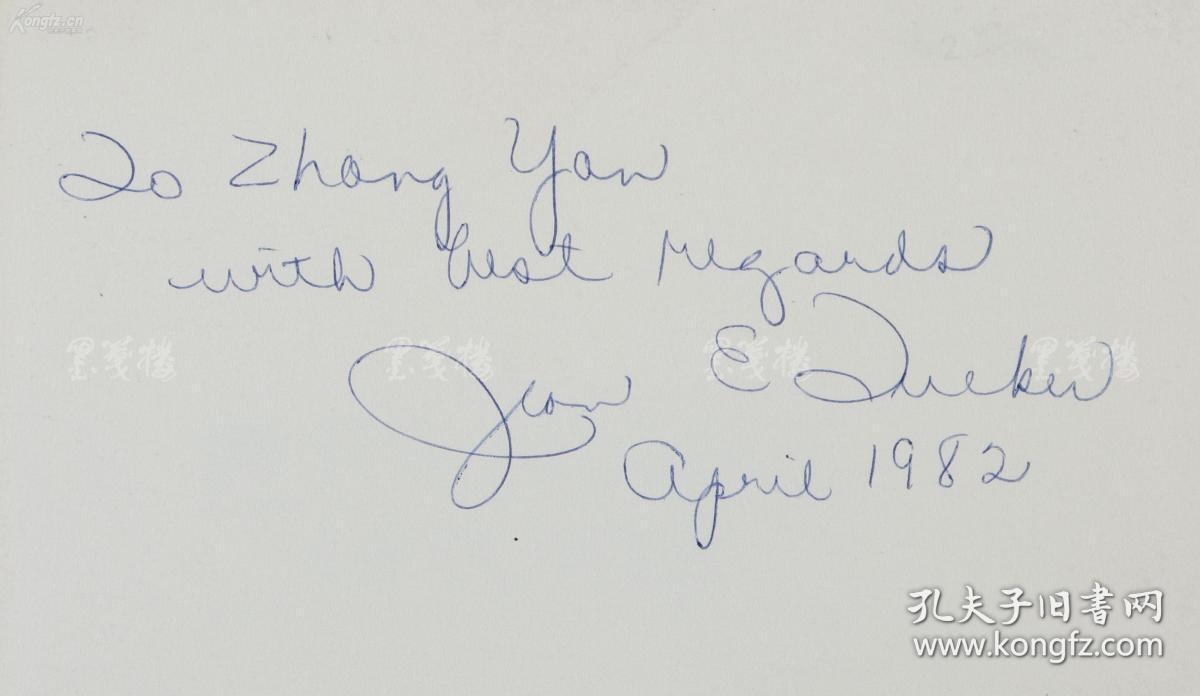 Kongfz.cn
To Zhang Yan
with best regards
墨笺楼 墨笺楼 墨笺楼 墨笺楼
Jean E Tucker
April 1982
孔夫子旧书网
www.kongfz.com